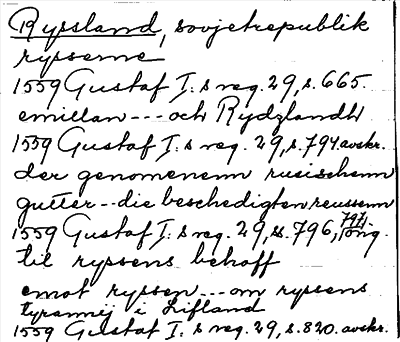 Ryssland, sovjetrepublik
rysserne
1559 Gustaf I: s reg. 29, s. 665.
emillan --- och Rydzlandh
1559 Gustaf I: s reg. 29, s. 794 avskr.
der genomenenn rusischenn
gutter -- die beschedigten reussenn
1559 Gustaf I: s reg. 29, ss. 796, 797, orig.
til ryssens behoff
emot ryssen --- om ryssens
tyrannej i Lifland
1559 Gustaf I: s reg. 29, s. 820. avskr.